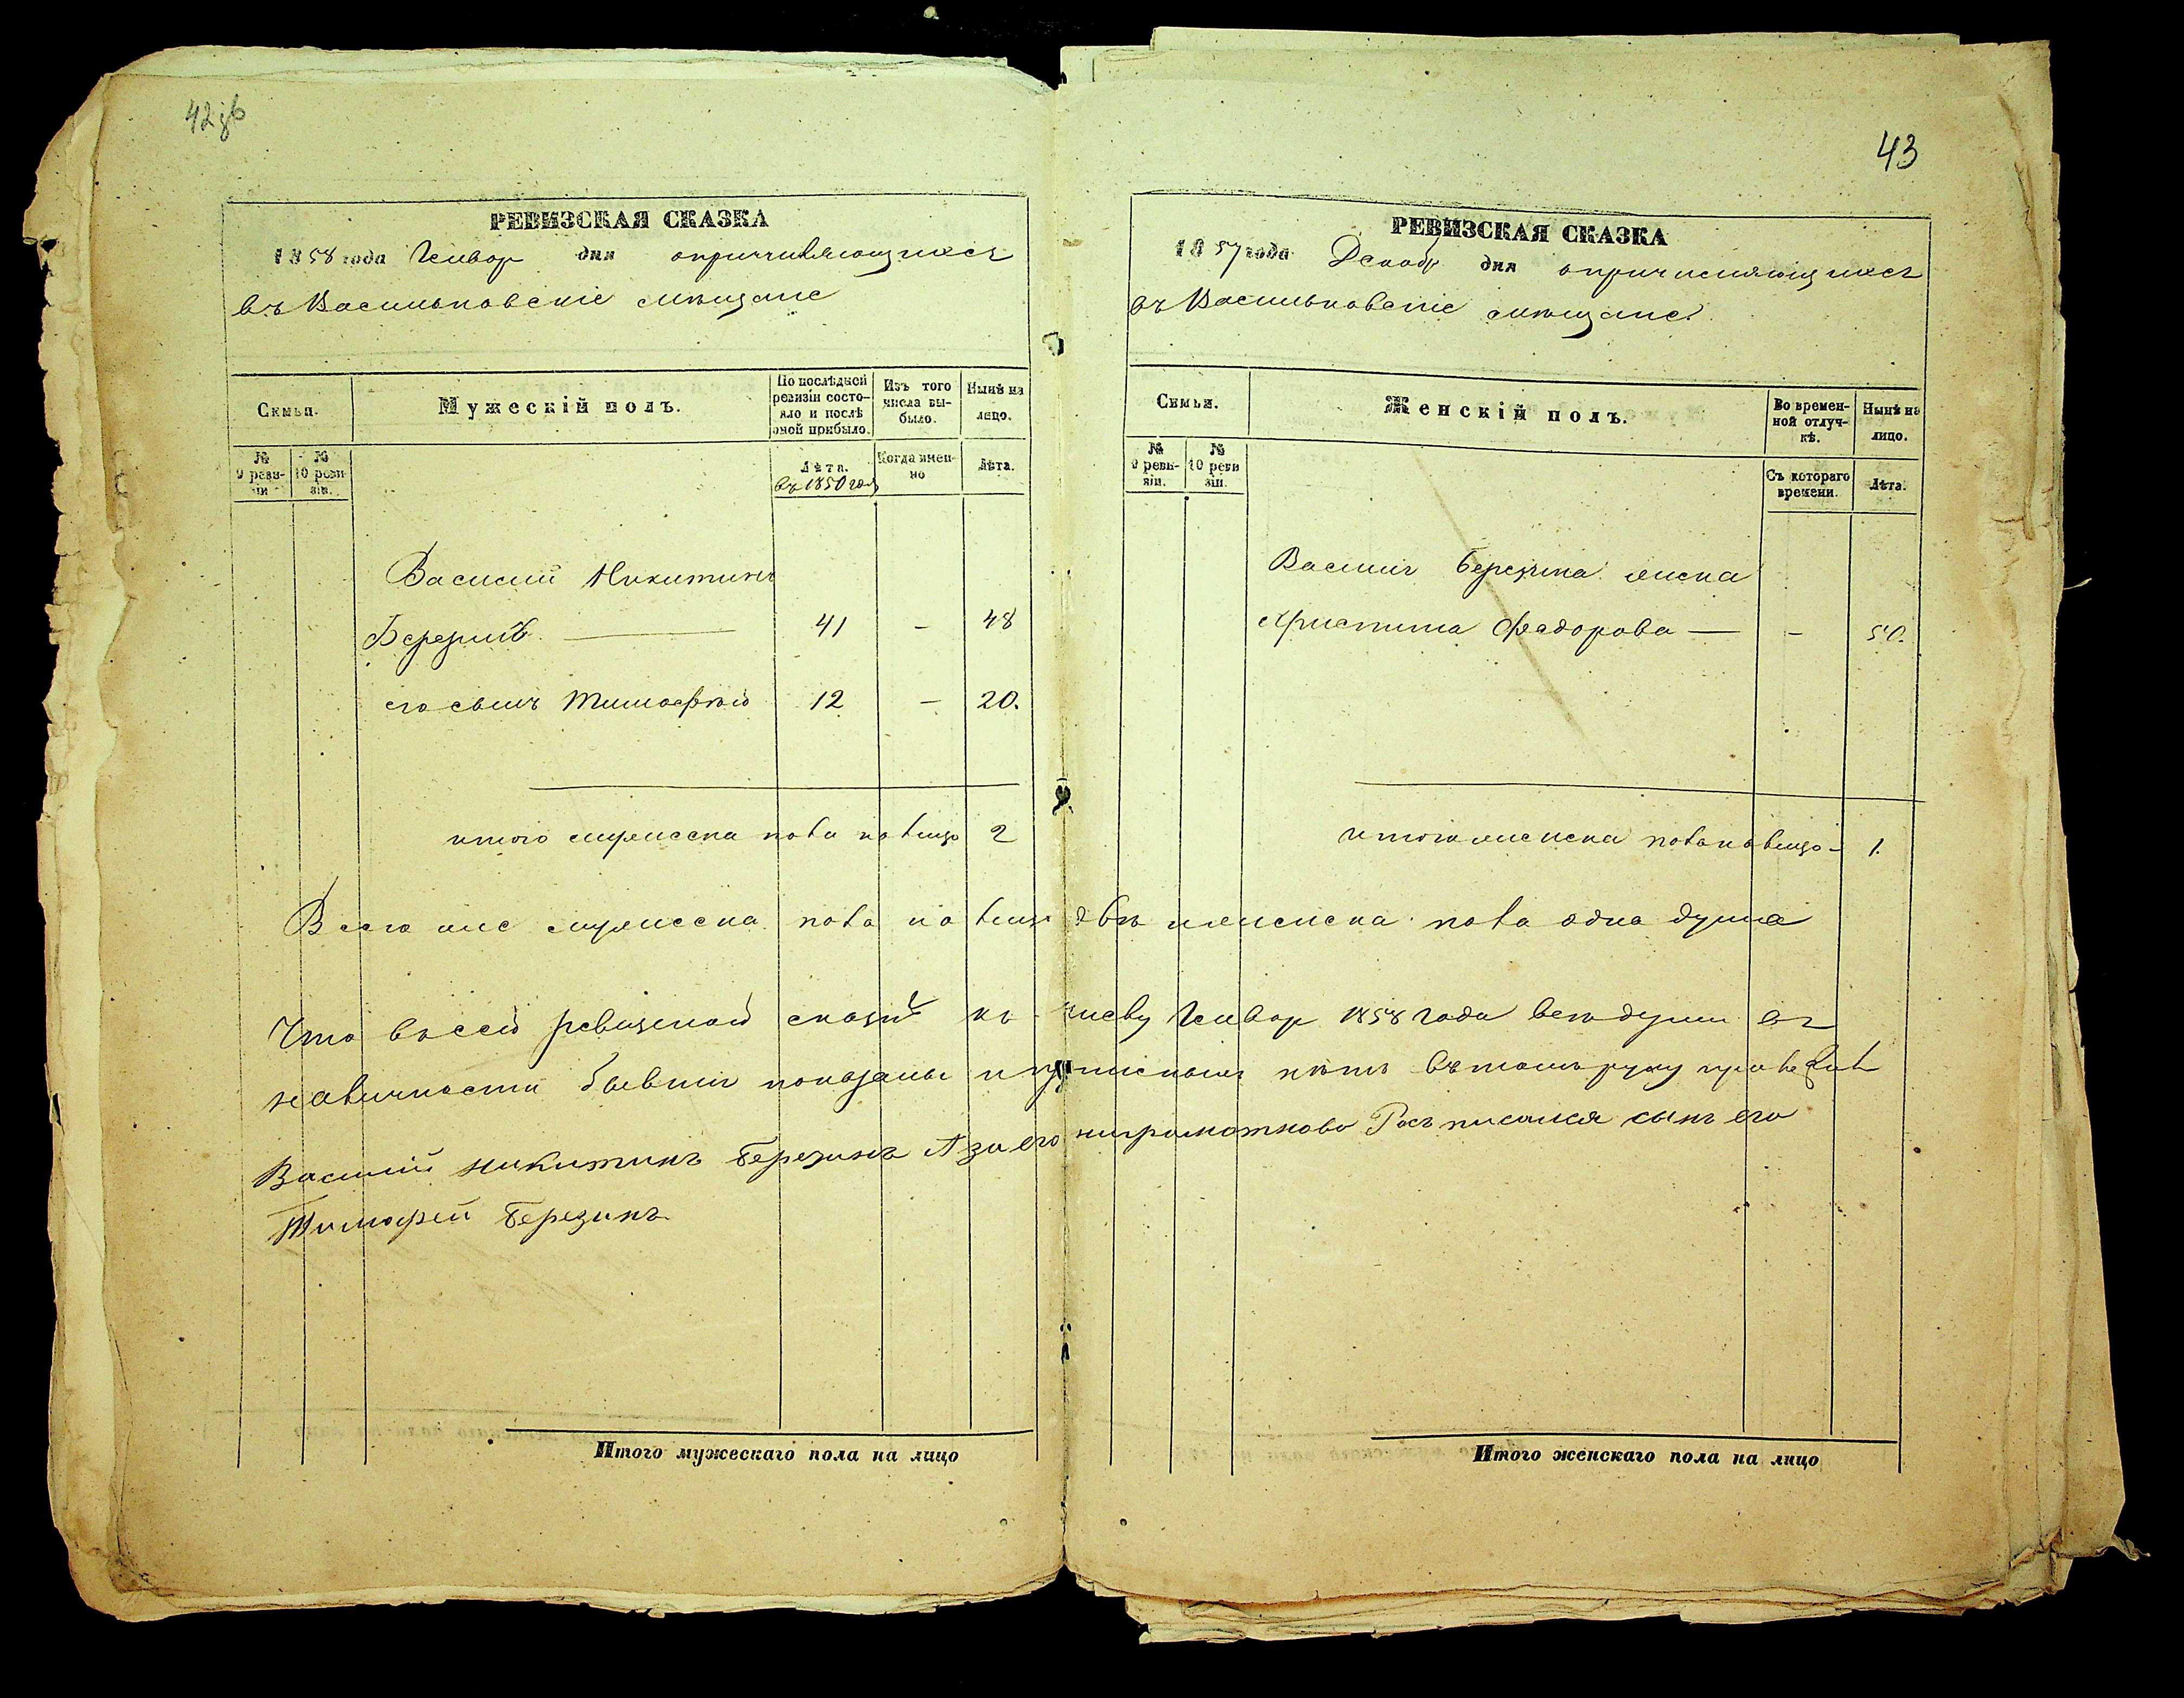 42зв
РЕВИЗСКАЯ СКАЗКА
1858 года Генвар дня о причисляющихся
въ Васильковскіе мещане
Семьи.
Мужескій полъ.
По послѣдней ревизіи состояло и послѣ оной прибыло.
Изъ того числа выбыло.
Нынѣ на лицо.
№ 9 ревизіи
№ 10 ревизіи.
Лѣта.
въ 1850 год
Когда именно
Лѣта.
Василий Никитинъ
Березинъ 41 - 48
его сынъ Тимофѣй 12 - 20.
итого мужеска пола на лицо 2
43
РЕВИЗСКАЯ СКАЗКА
1857 года Декаб дня о причисляющихся
въ Васильковскіе мещане
Семьи.
Женскій полъ.
Во временной отлучкѣ.
Нынѣ на лицо.
№ 9 ревизіи.
№ 10 ревизіи.
Съ котораго времени.
Лѣта.
Василия Березина жена
Христина Федорова - 50.
итого женска пола на лицо - 1.
Всего мужеска пола на лицо двѣ и женска пола одна душа
Что в сей ревизской сказкѣ къ числу Генвар 1858 года всѣ души въ
наличности бывши показаны и прописныхъ нѣтъ въ томъ руку приложил
Василий Никитинъ Березинъ А за его ниграмотново Росъписался сынъ его
Тимофей Березинъ
Итого мужескаго пола на лицо
Итого женскаго пола на лицо